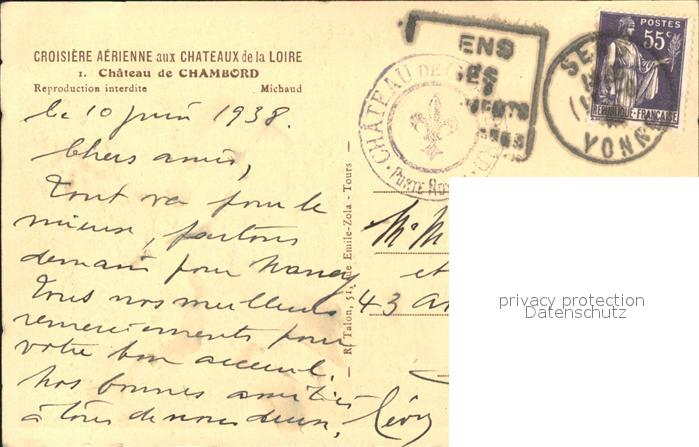 CROISIÈRE AÉRIENNE aux CHATEAUX de la LOIRE
1. Château de CHAMBORD
Reproduction interdite Michaud
le 10 juin 1938.
Chers amis,
Tout va pour le
mieux, partons
demain pour Nancy
Tous nos meilleurs
remerciements pour
votre bon accueil.
nos bonnes amitiés
à tous de nous deux,
R. Talon, 51, rue Emile-Zola - Tours
CHÂTEAU DE
PORTE
ENS
POSTES
55c
REPUBLIQUE-FRANÇAISE
SE
YONN
et
43
privacy protection
Datenschutz